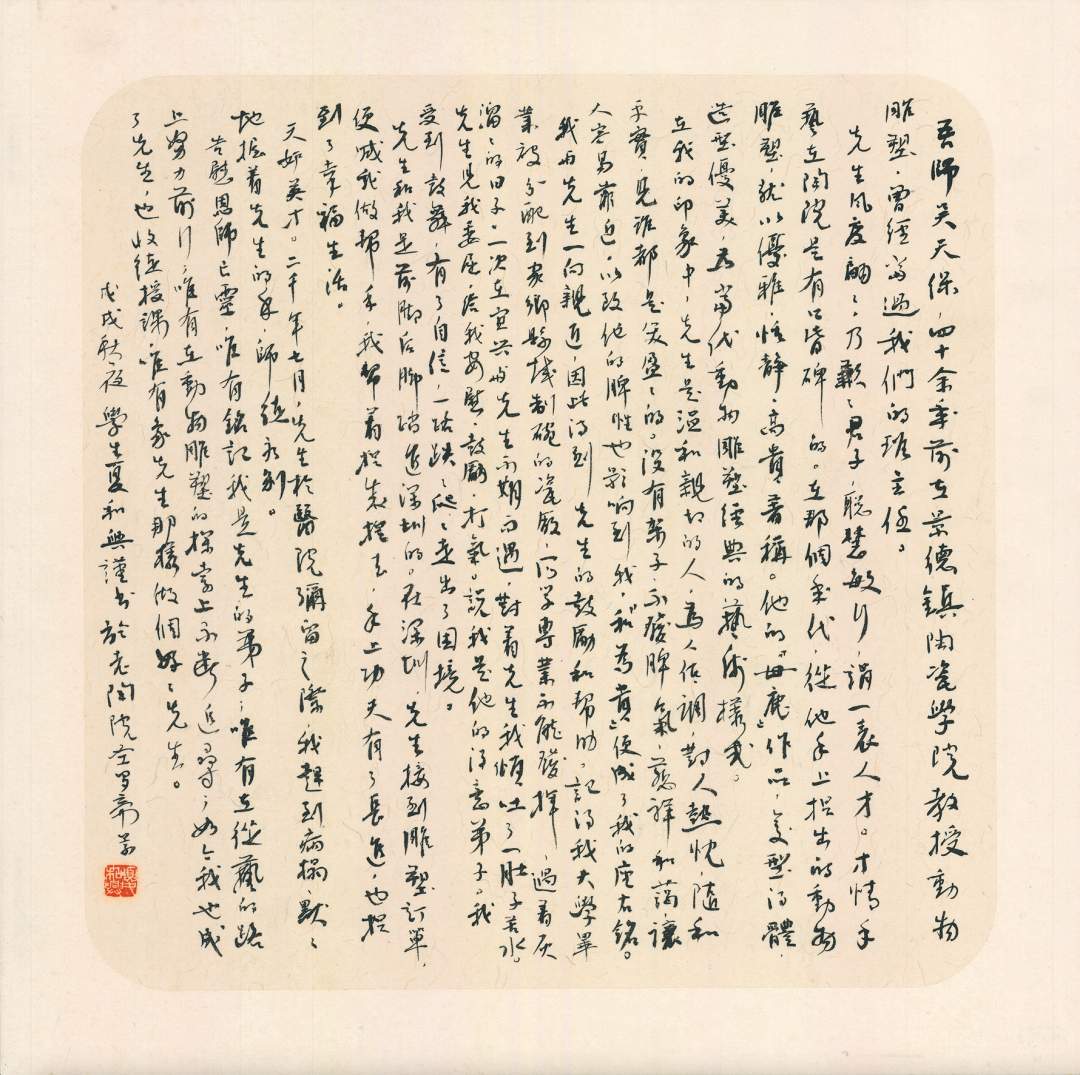 吾師吴天保，四十余年前在景德鎮陶瓷學院教授動物
雕塑，曾經當過我們的班主任。
先生风度翩翩，乃歉歉君子，聪慧敏行，謂一表人才。才情手
藝在陶院是有口皆碑的。在那個年代，從他手上捏出的動物
雕塑，就以優雅，恬静，高貴著稱。他的“母鹿”作品，造型得體，
造型優美，為當代動物雕塑經典的藝術樣式。
在我的印象中，先生是温和親切的人，爲人低調，對人熱忱，隨和
平實，見誰都是笑盈盈的。没有架子，不發脾氣，慈祥和藹，讓
人容易靠近，以致他的脾性也影响到我，“和爲貴”便成了我的座右銘。
我与先生一向親近，因此得到先生的鼓勵和幫助。記得我大學畢
業被分配到家鄉縣城制碗的瓷廠，所学專業不能發揮，過着灰
溜溜的日子。一次在宜兴与先生不期而遇，對着先生我傾吐了一肚子苦水。
先生見我委屈，給我安慰，鼓勵，打氣。説我是他的得意弟子。我
受到鼓舞，有了自信，一路跌跌爬爬走出了困境。
先生和我是前脚后脚踏進深圳的。在深圳，先生接到雕塑訂單，
便喊我做幫手，我幫着捏来捏去，手上功夫有了長進，也捏
到了幸福生活。
天妒英才。二千年七月，先生於醫院彌留之際，我趕到病榻，默默
地握着先生的手，師徒永别。
告慰恩師已靈，唯有銘記我是先生的弟子；唯有在從藝的路
上努力前行；唯有在動物雕塑的探索上不断追尋；如今我也成
了先生，也收徒授課，唯有象先生那樣做個好好先生。
戊戌秋夜 學生夏和興謹书於老陶院